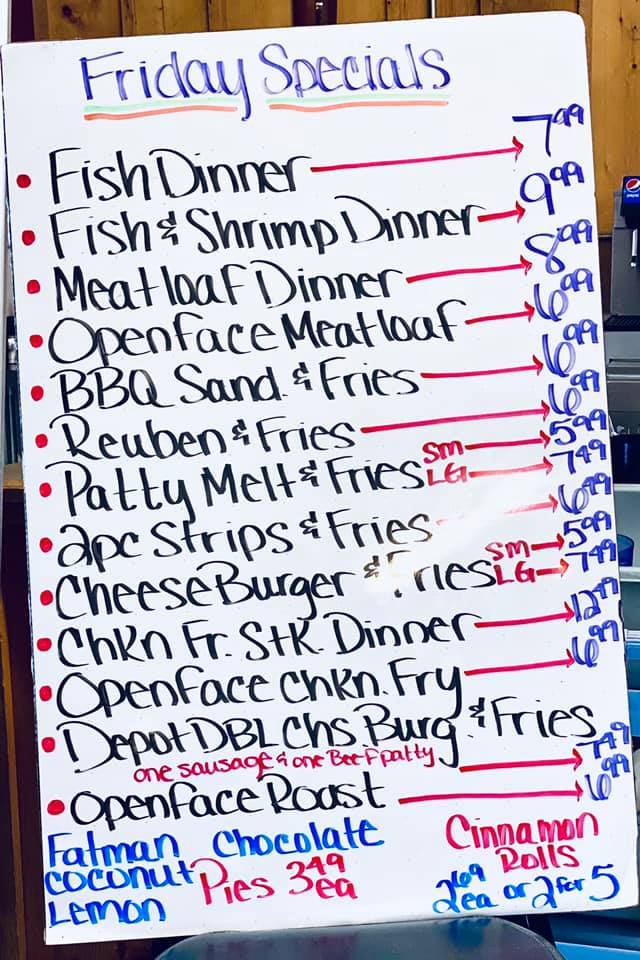 Friday Specials
• Fish Dinner → 7.99
• Fish & Shrimp Dinner → 9.99
• Meatloaf Dinner → 8.99
• Openface Meatloaf → 6.99
• BBQ Sand. & Fries → 6.99
• Reuben & Fries → 6.99
• Patty Melt & Fries SM → 5.99
LG → 7.49
• 2pc Strips & Fries → 6.99
• Cheese Burger & Fries SM → 5.99
LG → 7.49
• Chkn Fr. Stk. Dinner → 12.49
• Openface Chkn. Fry → 6.99
• Depot DBL Chs Burg. & Fries
one sausage & one Beef patty → 7.49
• Openface Roast → 6.99
Fatman Chocolate
Coconut Pies 3.49 ea
Lemon
Cinnamon
Rolls
2.69 ea or 2 for 5